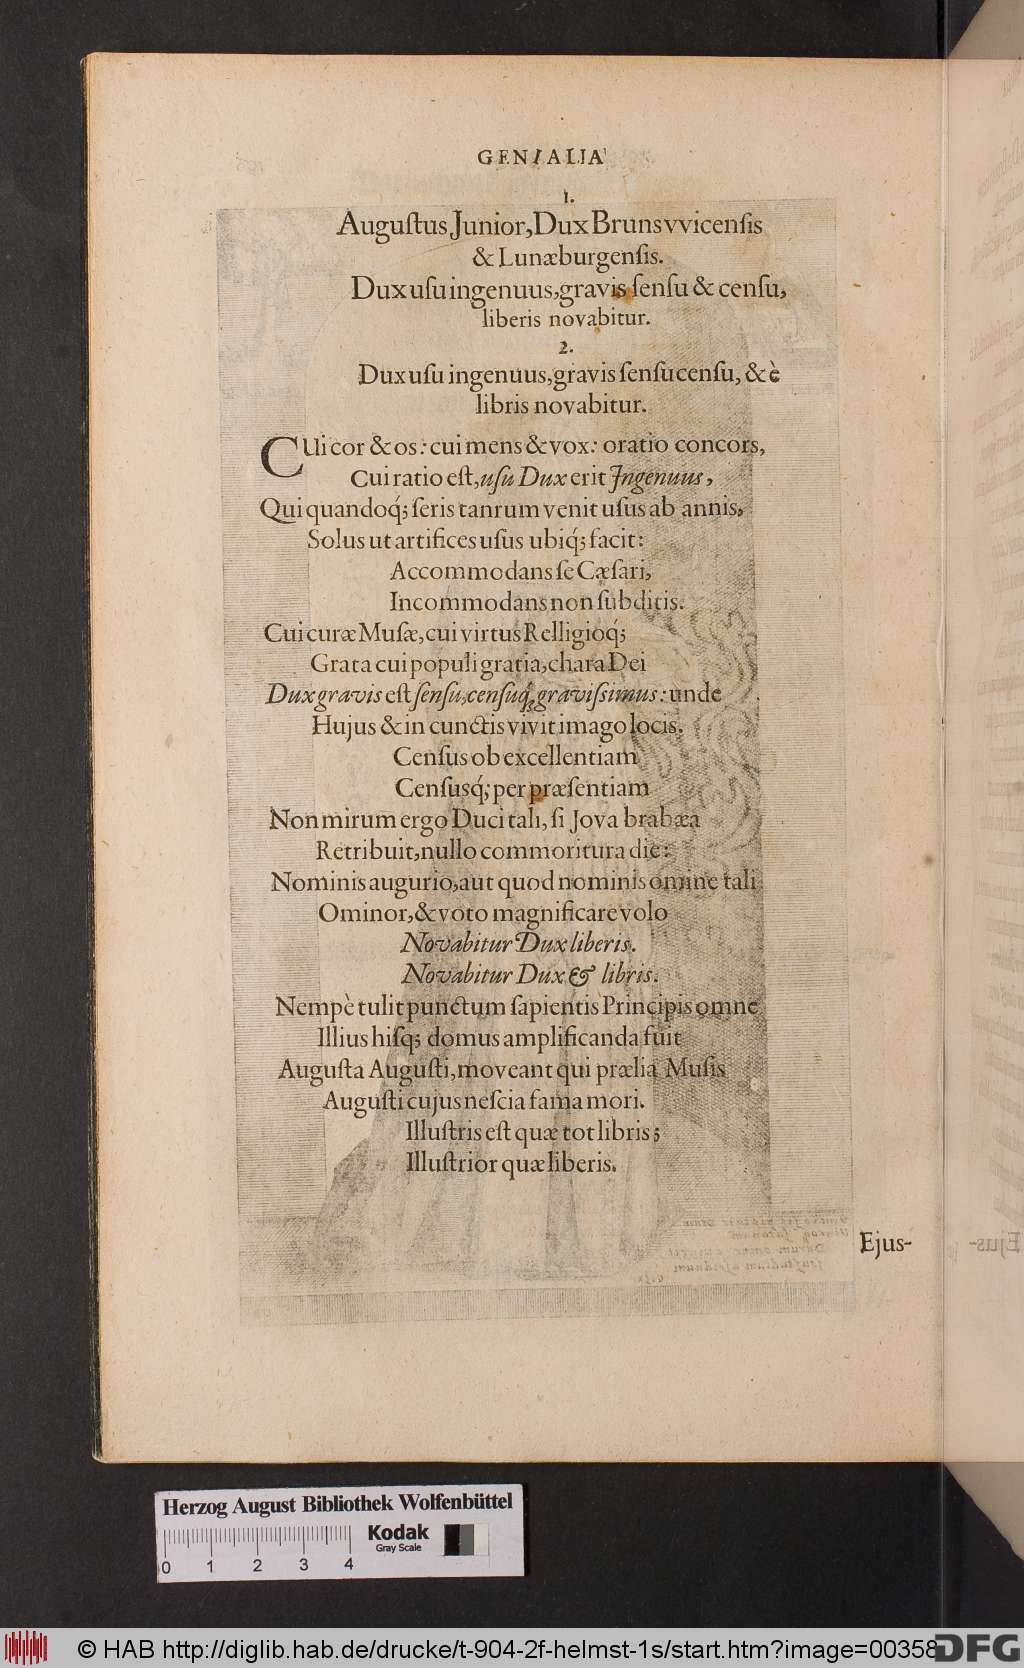 GENIALIA
1.
Auguſtus Junior, Dux Brunsvvicenſis
& Lunæburgenſis.
Dux uſu ingenuus, gravis ſenſu & cenſu,
liberis novabitur.
2.
Dux uſu ingenuus, gravis ſenſu cenſu, & è
libris novabitur.
CUi cor & os: cui mens & vox: oratio concors,
Cui ratio eſt, uſu Dux erit Ingenuus,
Qui quandoq́; ſeris tanrum venit uſus ab annis,
Solus ut artifices uſus ubiq́; facit:
Accommodans ſe Cæſari,
Incommodans non ſubditis.
Cui curæ Muſæ, cui virtus Relligioq́;
Grata cui populi gratia, chara Dei
Dux gravis eſt ſenſu, cenſuq́; graviſsimus: unde
Hujus & in cunctis vivit imago locis.
Cenſus ob excellentiam
Cenſusq́; per præſentiam
Non mirum ergo Duci tali, ſi Jova brabæa
Retribuit, nullo commoritura die:
Nominis augurio, aut quod nominis omine tali
Ominor, & voto magnificare volo
Novabitur Dux liberis.
Novabitur Dux & libris.
Nempè tulit punctum ſapientis Principis omne
Illius hiſq; domus amplificanda fuit
Auguſta Auguſti, moveant qui prælia Muſis
Auguſti cujus neſcia fama mori.
Illuſtris eſt quæ tot libris;
Illuſtrior quæ liberis.
Ejus-
Herzog August Bibliothek Wolfenbüttel
Kodak
Gray Scale
0 1 2 3 4
© HAB http://diglib.hab.de/drucke/t-904-2f-helmst-1s/start.htm?image=00358
DFG